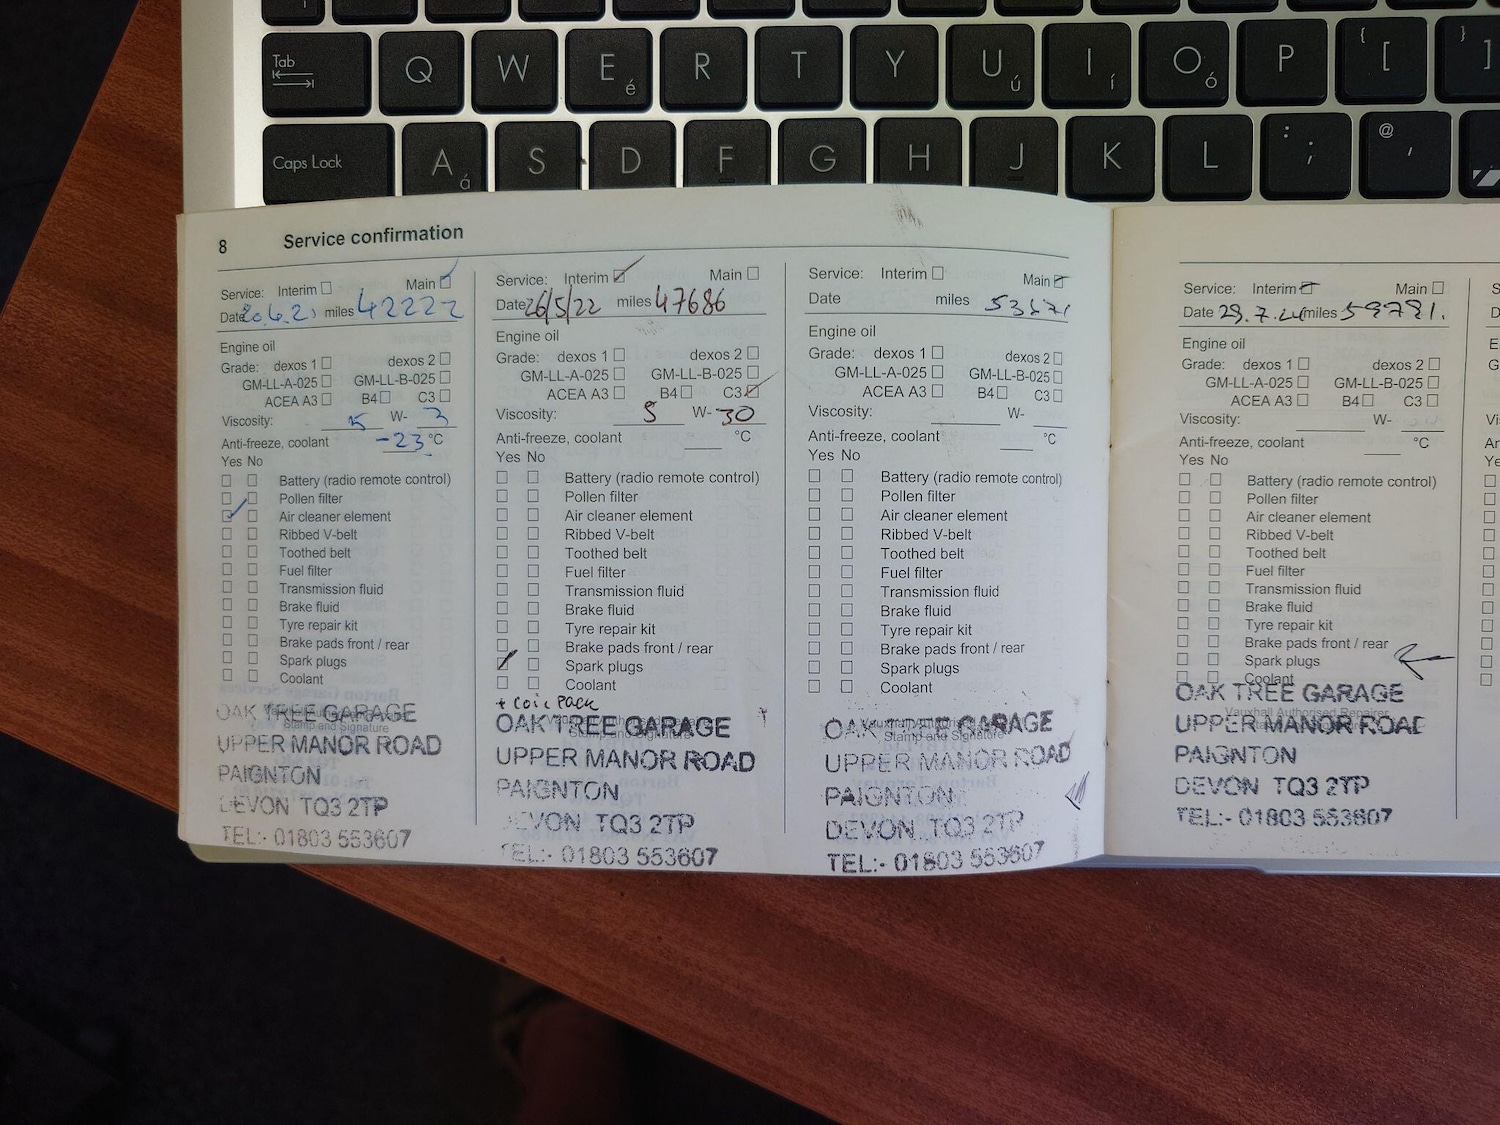 Tab Q W E é R T Y U ú I í O ó P { [ } ]
Caps Lock A á S D F G H J K L : ; @ ,
8 Service confirmation
Service: Interim Main
Date 20.4.21 miles 42222
Engine oil
Grade: dexos 1 dexos 2
GM-LL-A-025 GM-LL-B-025
ACEA A3 B4 C3
Viscosity: 5 W- 3
Anti-freeze, coolant -23 °C
Yes No
Battery (radio remote control)
Pollen filter
Air cleaner element
Ribbed V-belt
Toothed belt
Fuel filter
Transmission fluid
Brake fluid
Tyre repair kit
Brake pads front / rear
Spark plugs
Coolant
Stamp and Signature
OAK TREE GARAGE
UPPER MANOR ROAD
PAIGNTON
DEVON TQ3 2TP
TEL:- 01803 553607
Service: Interim Main
Date 26/5/22 miles 47686
Engine oil
Grade: dexos 1 dexos 2
GM-LL-A-025 GM-LL-B-025
ACEA A3 B4 C3
Viscosity: 5 W- 30
Anti-freeze, coolant °C
Yes No
Battery (radio remote control)
Pollen filter
Air cleaner element
Ribbed V-belt
Toothed belt
Fuel filter
Transmission fluid
Brake fluid
Tyre repair kit
Brake pads front / rear
Spark plugs
Coolant
+ Coil Pack
Stamp and Signature
OAK TREE GARAGE
UPPER MANOR ROAD
PAIGNTON
DEVON TQ3 2TP
TEL:- 01803 553607
Service: Interim Main
Date miles
Engine oil
Grade: dexos 1 dexos 2
GM-LL-A-025 GM-LL-B-025
ACEA A3 B4 C3
Viscosity: W-
Anti-freeze, coolant °C
Yes No
Battery (radio remote control)
Pollen filter
Air cleaner element
Ribbed V-belt
Toothed belt
Fuel filter
Transmission fluid
Brake fluid
Tyre repair kit
Brake pads front / rear
Spark plugs
Coolant
Stamp and Signature
OAK TREE GARAGE
UPPER MANOR ROAD
PAIGNTON
DEVON TQ3 2TP
TEL:- 01803 553607
Service: Interim Main
Date 29.7.24 miles 59791.
Engine oil
Grade: dexos 1 dexos 2
GM-LL-A-025 GM-LL-B-025
ACEA A3 B4 C3
Viscosity: W-
Anti-freeze, coolant °C
Yes No
Battery (radio remote control)
Pollen filter
Air cleaner element
Ribbed V-belt
Toothed belt
Fuel filter
Transmission fluid
Brake fluid
Tyre repair kit
Brake pads front / rear
Spark plugs
Coolant
Vauxhall Authorised Repairer
Stamp and Signature
OAK TREE GARAGE
UPPER MANOR ROAD
PAIGNTON
DEVON TQ3 2TP
TEL:- 01803 553607